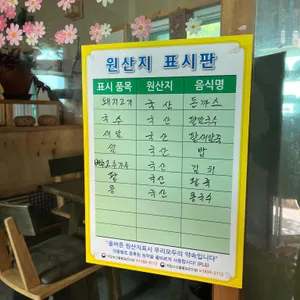 원산지 표시판
표시 품목 원산지 음식명
돼지고기 국산 돈까스
국수 국산 팥칼국수
새알 국산 팥새알죽
쌀 국산 밥
배추고춧가루 국산 김치
팥 국산
콩 국산 콩국수
"올바른 원산지표시 우리모두의 약속입니다"